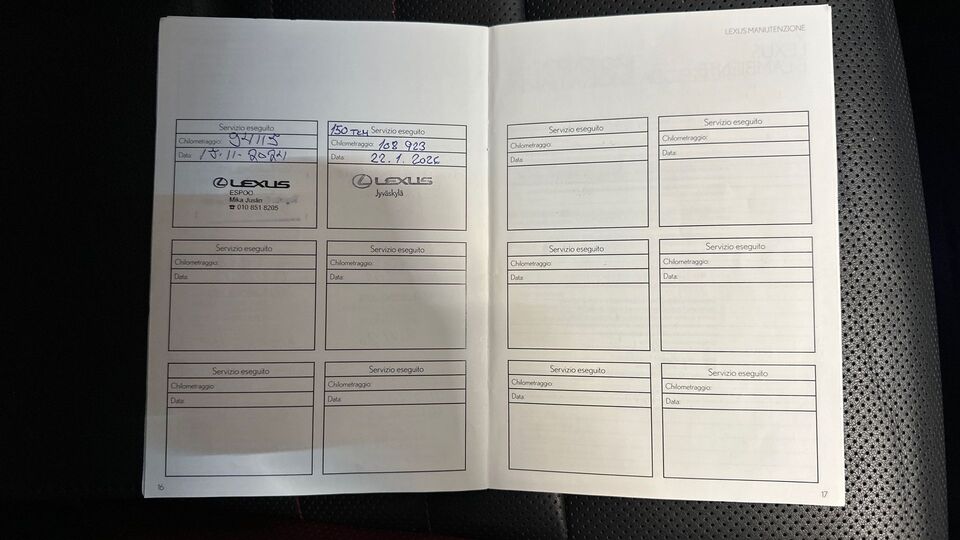 LEXUS MANUTENZIONE
Servizio eseguito
Chilometraggio: 94115
Data:
LEXUS
ESPOO
Mika Juslin
☎ 010 851 8205
150 TKM Servizio eseguito
Chilometraggio: 108 923
Data: 22.1.2026
LEXUS
Jyväskylä
Servizio eseguito
Chilometraggio:
Data:
Servizio eseguito
Chilometraggio:
Data:
Servizio eseguito
Chilometraggio:
Data:
Servizio eseguito
Chilometraggio:
Data:
Servizio eseguito
Chilometraggio:
Data:
Servizio eseguito
Chilometraggio:
Data:
Servizio eseguito
Chilometraggio:
Data:
Servizio eseguito
Chilometraggio:
Data:
Servizio eseguito
Chilometraggio:
Data:
Servizio eseguito
Chilometraggio:
Data:
16
17